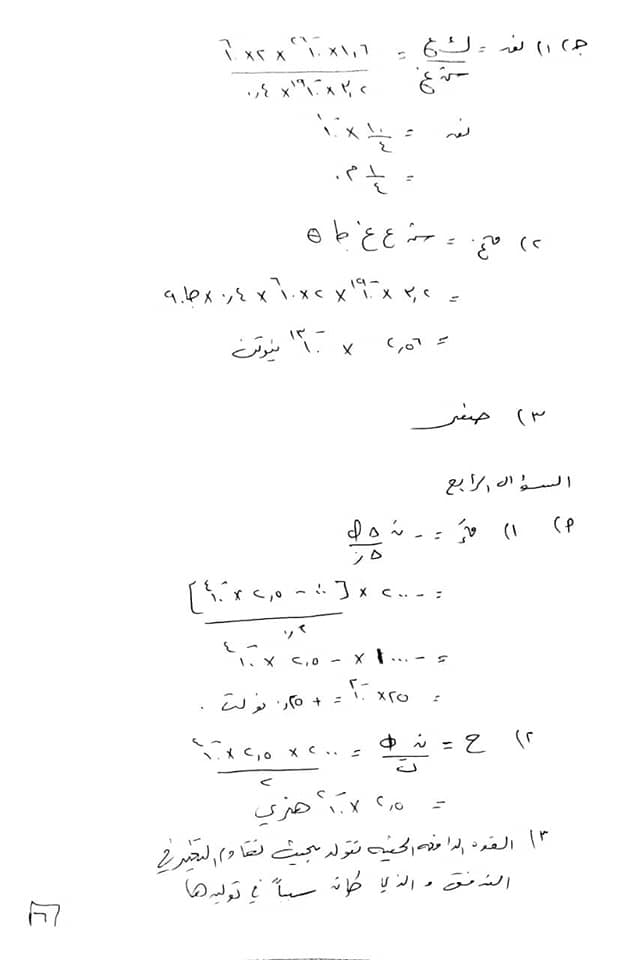 جـ) ١) نفه = ك ع / سه غ = ١,٦ × ١٠^-٢٦ × ٢ × ١٠^٦ / ٣,٢ × ١٠^-١٩ × ٠,٤
نفه = ١٠/٤ × ١٠^-١
= ١/٤ م.
٢) قغ = سه ع غ جا θ
= ٣,٢ × ١٠^-١٩ × ٢ × ١٠^٦ × ٠,٤ × جا ٩٠
= ٢,٥٦ × ١٠^-١٣ نيوتن
٣) صفر
السؤال الرابع
٢) ١) قَد = - ن Δφ / Δز
= - ٢٠٠ × [٠٠ - ٢,٥ × ١٠^-٤] / ٠,٢
= - ١٠٠٠ × - ٢,٥ × ١٠^-٤
= ٢٥ × ١٠^-٢ = + ٠,٢٥ فولت.
٢) ح = ن φ / ت = ٢٠٠ × ٢,٥ × ١٠^-٤ / ٢
= ٢,٥ × ١٠^-٢ هنري
٣) القوه الدافعه الحثيه تتولد بحيث تقاوم التغير في
التدفق والذي كان سبباً في توليدها